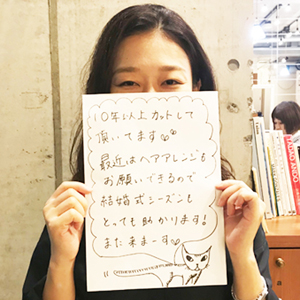 10年以上カットして
頂いてます
最近はヘアアレンジも
お願いできるので
結婚式シーズンも
とっても助かります!
また来まーす